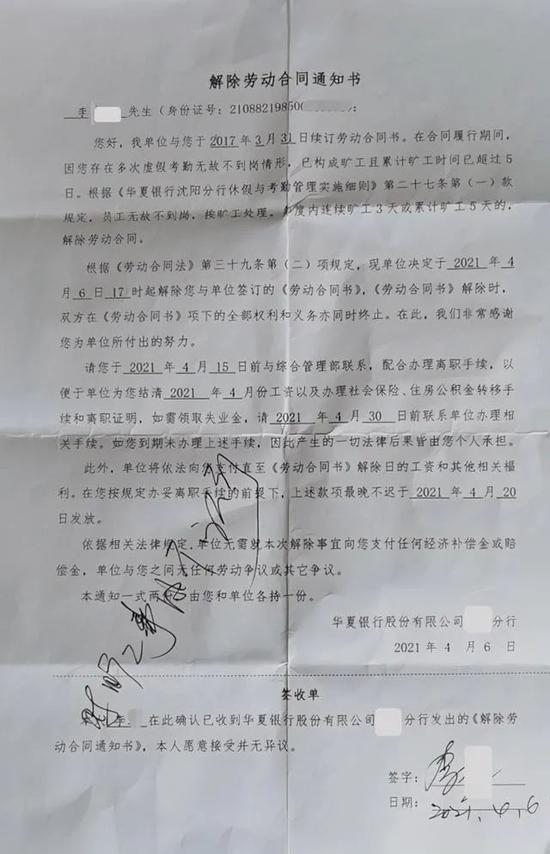 解除劳动合同通知书
李 先生（身份证号：21088219850
您好，我单位与您于2017年3月31日续订劳动合同书。在合同履行期间，
因您存在多次虚假考勤无故不到岗情形，已构成旷工且累计旷工时间已超过5
日。根据《华夏银行沈阳分行休假与考勤管理实施细则》第二十七条第（一）款
规定，员工无故不到岗，按旷工处理。年度内连续旷工3天或累计旷工5天的，
解除劳动合同。
根据《劳动合同法》第三十九条第（二）项规定，现单位决定于 2021 年 4
月 6 日 17 时起解除您与单位签订的《劳动合同书》，《劳动合同书》解除时，
双方在《劳动合同书》项下的全部权利和义务亦同时终止。在此，我们非常感谢
您为单位所付出的努力。
请您于 2021 年 4 月 15 日前与综合管理部联系，配合办理离职手续，以
便于单位为您结清 2021 年 4 月份工资以及办理社会保险、住房公积金转移手
续和离职证明，如需领取失业金，请 2021 年 4 月 30 日前联系单位办理相
关手续。如您到期未办理上述手续，因此产生的一切法律后果皆由您个人承担。
此外，单位将依法向您支付直至《劳动合同书》解除日的工资和其他相关福
利。在您按规定办妥离职手续的前提下，上述款项最晚不迟于 2021 年 4 月 20
日发放。
依据相关法律规定，单位无需就本次解除事宜向您支付任何经济补偿金或赔
偿金，单位与您之间无任何劳动争议或其它争议。
本通知一式两份，由您和单位各持一份。
华夏银行股份有限公司 分行
2021 年 4 月 6 日
签收单
李 在此确认已收到华夏银行股份有限公司 分行发出的《解除劳
动合同通知书》，本人愿意接受并无异议。
签字：李
日期：2021.4.6